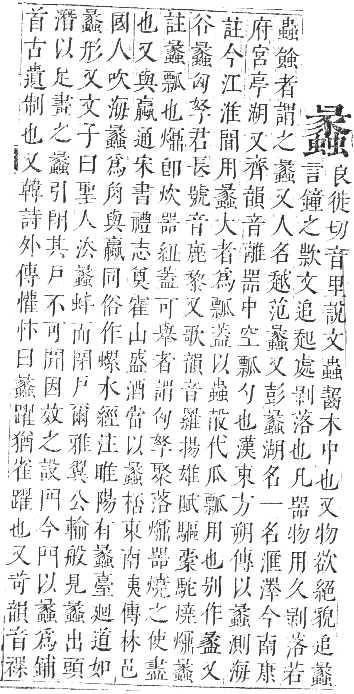 蠡
良徙切音里說文蟲齧木中也又物欲絕貌追蠡
言鐘之欵文追起處剝落也凡器物用久剝落若
蟲蝕者謂之蠡又人名越范蠡又彭蠡湖名一名滙澤今南康
府宮亭湖又齊韻音離器中空瓢勺也漢東方朔傳以蠡測海
註今江淮間用蠡大者爲瓢葢以蟲㱿代瓜瓢用也別作盠又
谷蠡匈孥君長號音鹿黎又歌韻音羅揚雄賦驅橐駝燒㷅蠡
註蠡瓢也㷅卽炊器紐葢可舉者謂匈孥聚落㷅器燒之使盡
也又與蠃通宋書禮志奠霍山盛酒當以蠡桮東南夷傳林邑
國人吹海蠡爲角與蠃同俗作螺水經注睢陽有蠡臺廻道如
蠡形又文子曰聖人法蠡蚌而閉戶爾雅翼公輸般見蠡出頭
潛以足畫之蠡引閉其戶不可開因效之設門今門以蠡爲鋪
首古遺制也又韓詩外傳懽忭曰蠡躍猶雀躍也又哿韻音裸